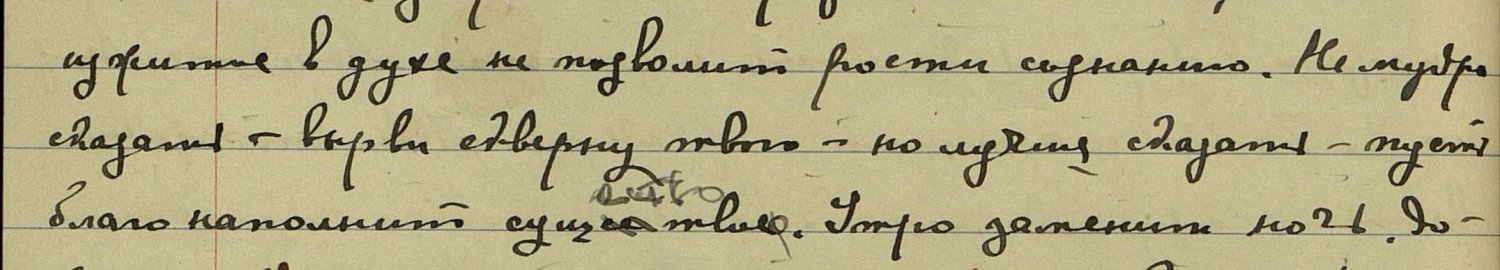 изжитие в духе не позволит рости сознанию. Не мудро
сказать – вырви скверну твою – но лучше сказать – пусть
благо наполнит существо твое. Утро заменит ночь. До-